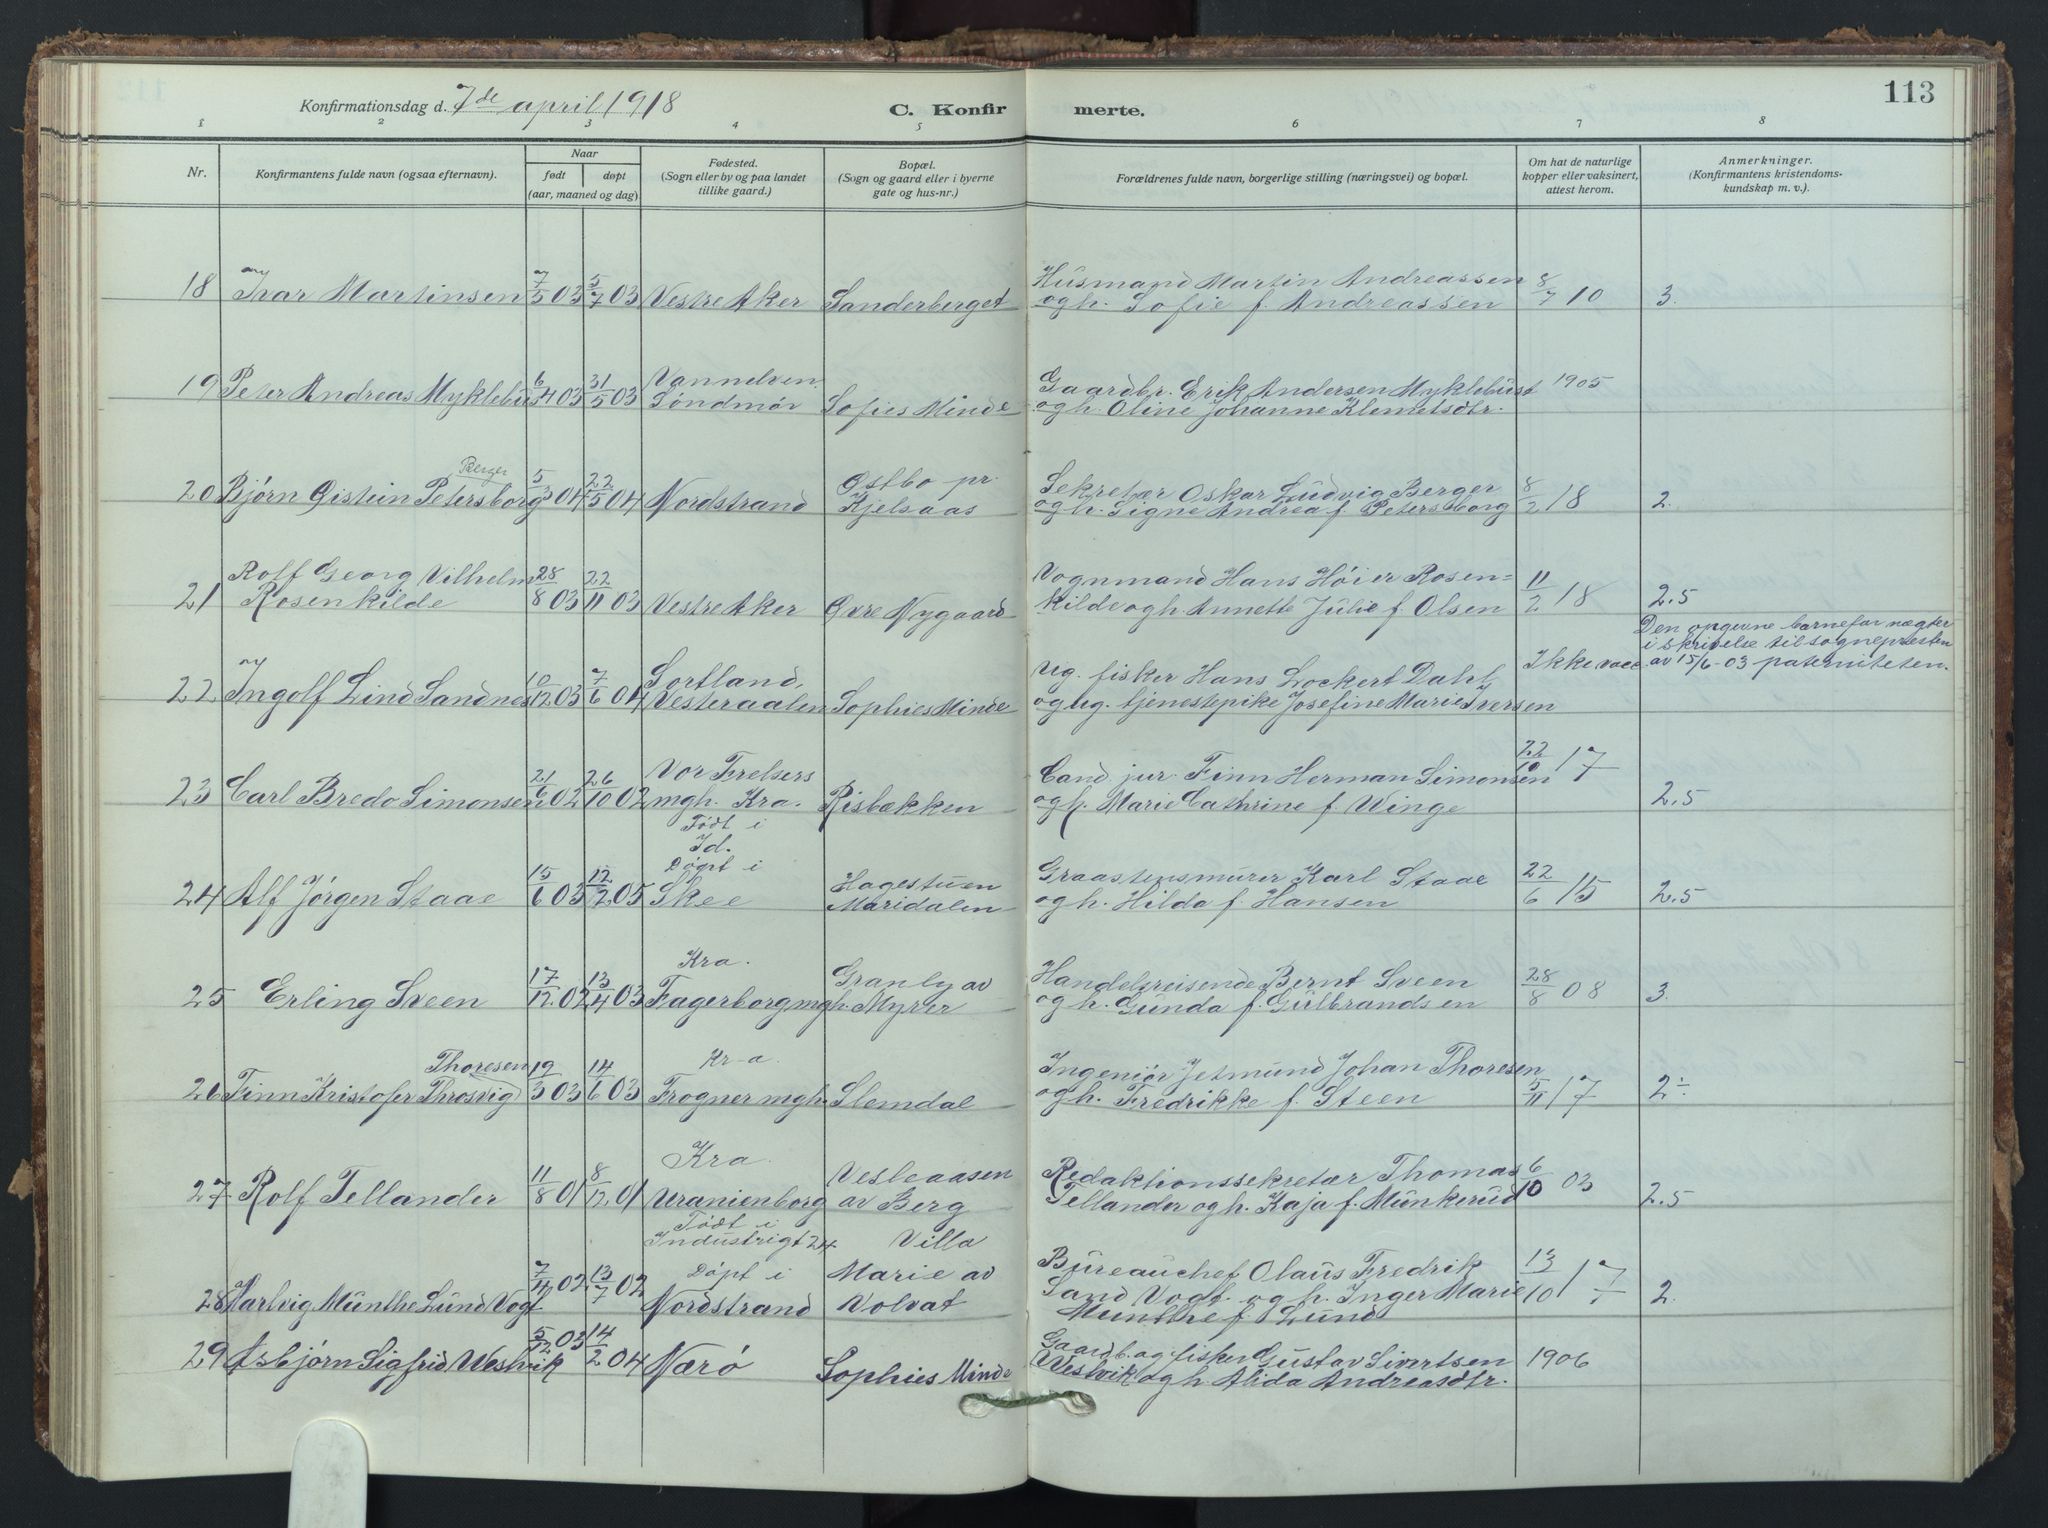 113
Konfirmationsdag d. 7de april 1918
C. Konfirmerte.
1 2 3 4 5 6 7 8
Nr.
Konfirmantens fulde navn (ogsaa efternavn).
Naar
født døpt
(aar, maaned og dag)
Fødested.
(Sogn eller by og paa landet
tillike gaard.)
Bopæl.
(Sogn og gaard eller i byerne
gate og hus-nr.)
Forældrenes fulde navn, borgerlige stilling (næringsvei) og bopæl.
Om hat de naturlige
kopper eller vaksinert,
attest herom.
Anmerkninger.
(Konfirmantens kristendoms-
kundskap m. v.).
18 Ivar Martinsen 7/5 03 5/7 03 Vestre Aker Sanderberget
Husmand Martin Andreassen
og h. Sofie f. Andreassen 8/7 10 3.
19 Peter Andreas Myklebust 6/4 03 31/5 03
Vannelven
Søndmør
Sofies Minde
Gaardbr. Erik Andersen Myklebust
og h. Oline Johanne Klemetsdtr. 1905
Berger
20 Bjørn Øistein Petersborg 5/3 04 22/5 04 Nordstrand
Østbo pr.
Kjelsaas
Sekretær Oskar Ludvig Berger
og h. Signe Andrea f. Petersborg 8/2 18 2.
21 Rolf Georg Vilhelm
Rosenkilde 28/8 03 22/11 03 Vestre Aker Øvre Nygaard
Vognmand Hans Høier Rosen=
kilde og h. Annette Julie f. Olsen 11/2 18 2.5
22 Ingolf Lind Sandnes 10/12 03 7/6 04
Sortland,
Vesteraalen
Sophies Minde
Ug. fisker Hans Lockert Dahl
og ug. tjenestepike Josefine Marie Iversen
Ikke vacc.
Den opgivne barnefar nægter
i skrivelse til sognepresten
av 15/6-03 paterniteten.
23 Carl Bredo Simonsen 21/6 02 26/10 02
Vor Frelsers
mgh. Kra.
Risbækken
Cand. jur. Finn Herman Simonsen
og h. Marie Cathrine f. Winge 22/10 17 2.5
24 Alf Jørgen Staae 15/6 03 12/2 05
Født i
Id.
Døpt i
Skee
Hagestuen
Maridalen
Graastensmurer Karl Staae
og h. Hilda f. Hansen 22/6 15 2.5
25 Erling Sveen 17/12 02 13/4 03
Kra.
Fagerborg mgh.
Granly av
Myrer
Handelsreisende Bernt Sveen
og h. Gunda f. Gulbrandsen 28/8 08 3.
Thoresen
26 Finn Kristofer Throsvig 19/3 03 14/6 03
Kr-a.
Frogner mgh.
Slemdal
Ingeniør Jetmund Johan Thoresen
og h. Fredrikke f. Steen 5/11 17 2÷
27 Rolf Tellander 11/8 01 8/12 01
Kra.
Uranienborg
Vesleaasen
av Berg
Redaktionssekretær Thomas
Tellander og h. Kaja f. Munkerud 6/10 03 2.5
28 Harlvig Munthe Lund Vogt 7/4 02 13/7 02
Født i
Industrigt 24
Døpt i
Nordstrand
Villa
Marie av
Volvat
Bureauchef Olaus Fredrik
Sand Vogt og h. Inger Marie
Munthe f. Lund 13/10 17 2.
29 Asbjørn Sigfrid Vestvik 5/12 03 14/2 04 Nærø Sophies Minde
Gaardb. og fisker Gustav Sivertsen
Vestvik og h. Alida Andreasdtr. 1906